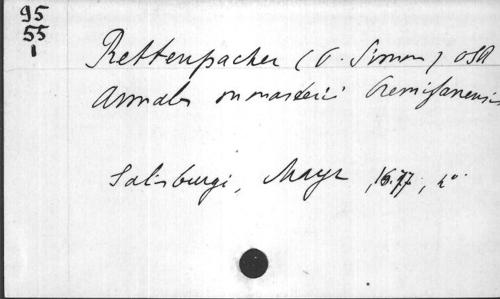 95
55
1
Rettenpacher (P. Simon) OSB
Annales monasterii Cremifanensis
Salisburgi, Mayr, 1677, 4°.